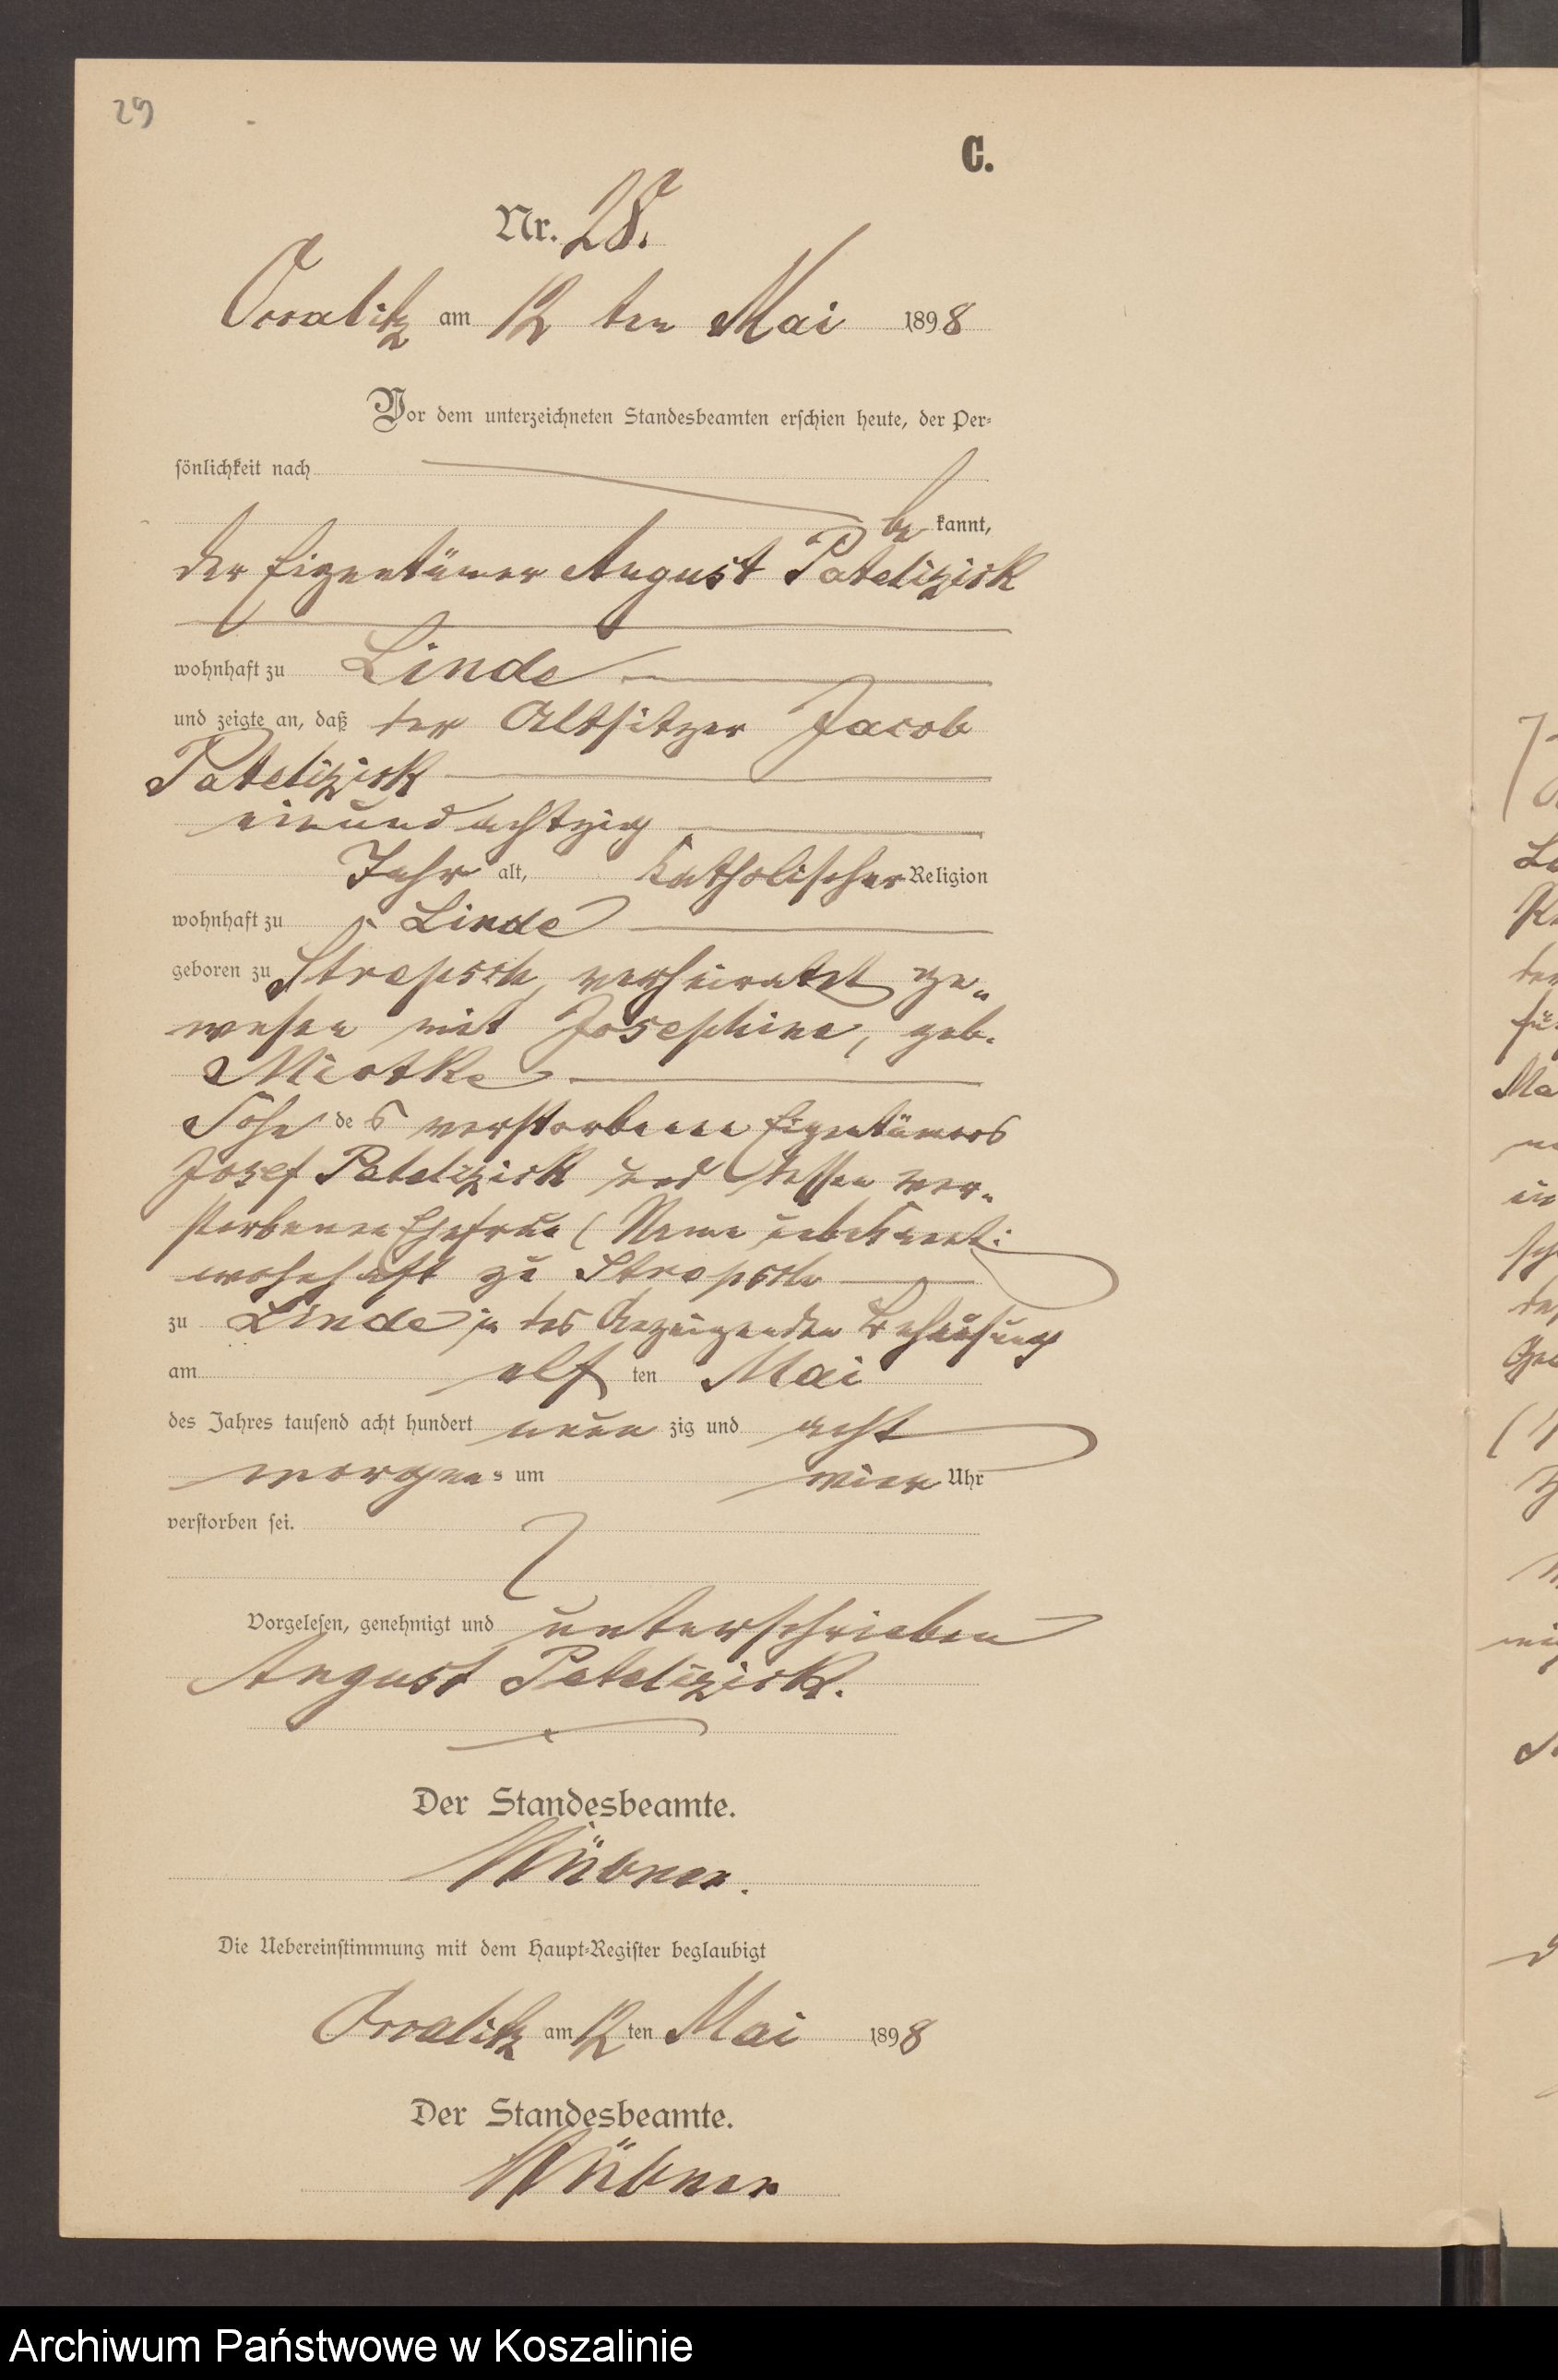 29
C.
Nr. 28.
am 12 ten Mai 1898
Vor dem unterzeichneten Standesbeamten erschien heute, der Per=
sönlichkeit nach
be kannt,
der Eigentümer August Patelizick
wohnhaft zu Linde
und zeigte an, daß der Altsitzer Jacob
Patelizick
einundachtzig
Jahr alt, katholischer Religion
wohnhaft zu Linde
geboren zu verheiratet ge„
wesen mit Josephine, geb.
Miotke
Sohn des verstorbenen Eigentümers
Josef Patelizick und dessen ver„
storbenen Ehefrau (Name unbekannt:
wohnhaft zu
zu Linde in des Anzeigenden Behausung
am elf ten Mai
des Jahres tausend acht hundert neun zig und acht
morgens um vier Uhr
verstorben sei.
Vorgelesen, genehmigt und unterschrieben
August Patelizick.
Der Standesbeamte.
Die Uebereinstimmung mit dem Haupt=Register beglaubigt
am 12 ten Mai 1898
Der Standesbeamte.
Archiwum Państwowe w Koszalinie